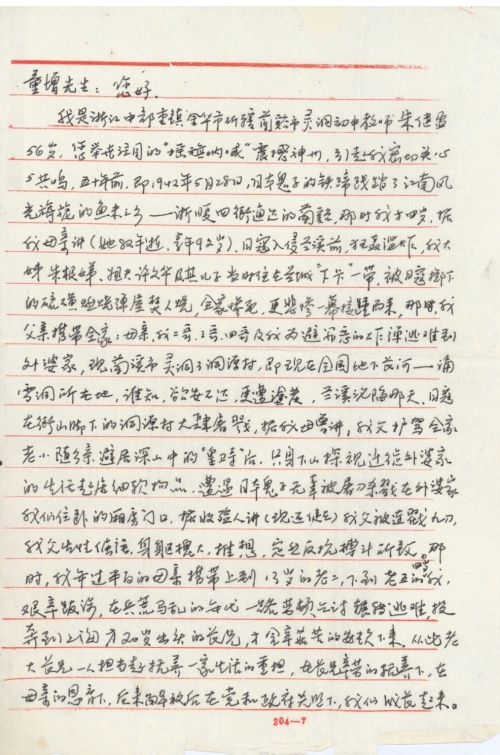 童增先生：您好。
我是浙江中部重镇金华市所辖兰溪市灵洞初中教师朱
56岁，您举世注目的"
与共鸣，五十年前，即1942年5月28日，日本鬼子的铁蹄践踏了江南风
光旖旎的鱼米之乡——浙赣四衢通达的兰溪，那时我才四岁，据
我母亲讲（她双年逝，享年92岁），日寇入侵兰溪前，狂轰滥炸，我大
姊朱根娣、姐夫许久华及其儿子当时住在兰城"下卡"一带，被日寇掷下
的硫磺燃烧弹屋焚人烧，全家惨死，更悲惨一幕接踵而来，那时，我
父亲携带全家：母亲，我二哥、三哥、四哥及我为避开恶的炸弹逃难到
外婆家，现兰溪市灵洞乡洞源村，即现在全国地下长河——涌
雪洞所在地，谁知，欲安不还，更遭涂炭，兰溪沦陷那天，日寇
在衢山脚下的洞源村大肆屠戮，据我母亲讲，我父护驾全家
老小随乡亲避居深山中的"里寺"后，只身下山探视迁徙外婆家
的生活起居细软物品，遭遇日本鬼子无辜被屠刀杀戮在外婆家
我们住卧的厢房门口，据收殓人讲（现还健在）我父被连戳九刀，
我父生性倔强，身躯魁大，推想，定然反抗搏斗所致，那
时，我年过半百的母亲携带上到13岁的老二，下到老五四岁的我，
艰辛跋涉，在兵荒马乱的年代一路劳顿乞讨辗转逃难，投
奔到上海才20岁出头的长兄，才含辛茹苦的存放下来，从此老
大长兄一人担当起抚养一家生活的重担，由长兄辛苦的抚养下，在
母亲的恩育下，后来解放后在党和政府关照下，我们成长起来。
204—7